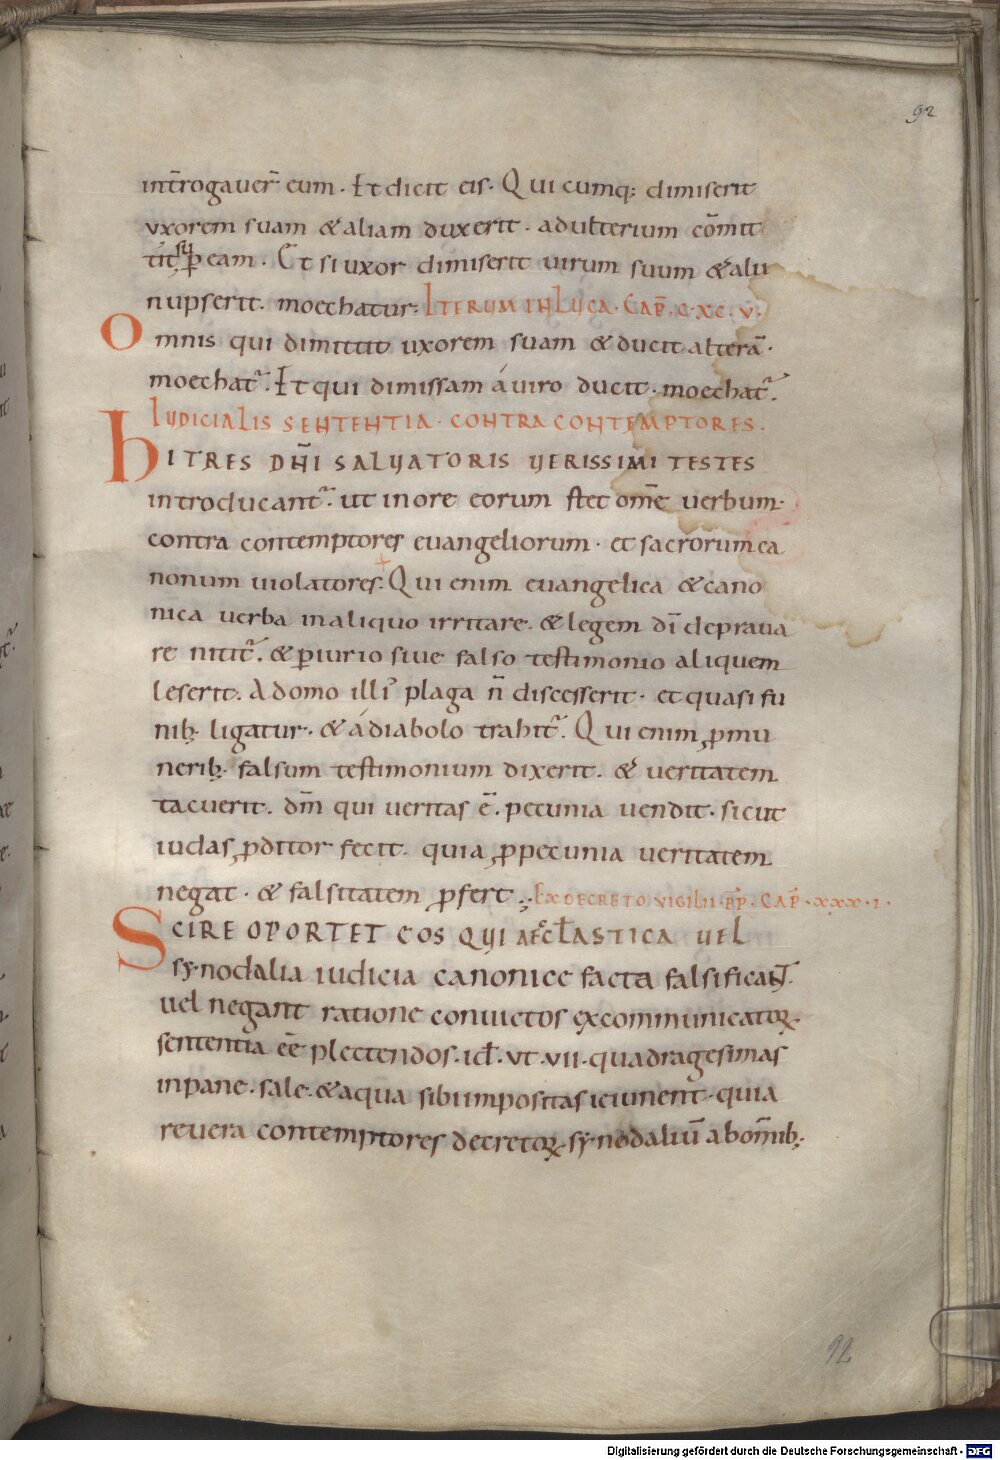 92
int̄rogauer̄ eum · Et dicit eis · Qui cumq; dimiserit
vxorem suam & aliam duxerit · adulterium cōmit
tit sup̄ eam · Et si uxor dimiserit uirum suum & alii
nupserit · moechatur: ITERUM IN LUCA · CAP̄ · C · XC · V ·
Omnis qui dimittit uxorem suam & ducit alterā ·
moechat᷒ · Et qui dimissam á uiro ducit · moechat᷒ ·
IUDICIALIS SENTENTIA · CONTRA CONTEMPTORES ·
HI TRES DN̄I SALUATORIS UERISSIMI TESTES
introducant᷒ · ut in ore eorum stet om̄e uerbum ·
contra contemptores euangeliorum · et sacrorum ca
nonum uiolatores · Qui enim euangelica & cano
nica uerba in aliquo irritare · & legem dī depraua
re nitit᷒ · & p̄iurio siue falso testimonio aliquem
leserit · A domo illi᷒ plaga n̄ discesserit · et quasi fu
nib; ligatur · & á diabolo trahit᷒ · Qui enim ꝓ mu
nerib; falsum testimonium dixerit · & ueritatem
tacuerit · dm̄ qui ueritas ē · pecunia uendit · sicut
iudas ꝓditor fecit · quia ꝓ pecunia ueritatem
negat · & falsitatem ꝓfert ·,· EX DECRETO VIGILII · P̄P · CAP̄ · XXX · I ·
SCIRE OPORTET EOS QUI AECCL̄ASTICA UEL
synodalia iudicia canonice facta falsificant ·
uel negant ratione conuictos excommunicatoꝝ ·
sententia ēe plectendos · id̄ · ut · vii · quadragesimas
in pane · sale · & aqua sibi impositas ieiunent · quia
reuera contemptores decretoꝝ synodaliū ab om̄ib; ·
92
Digitalisierung gefördert durch die Deutsche Forschungsgemeinschaft - DFG